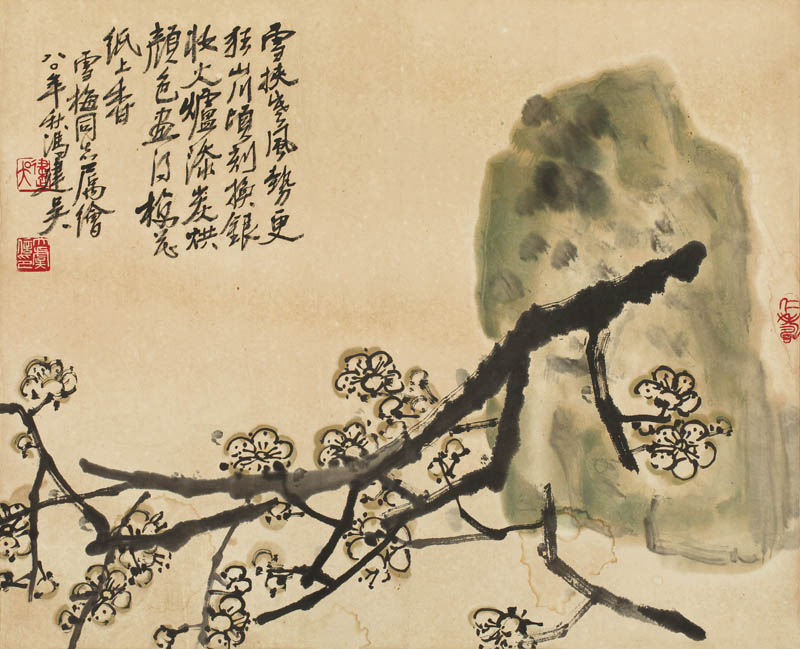 雪挾寒風勢更
狂山川頃刻換銀
妝火爐添炭烘
顏色畫得梅花
紙上香
雪梅同志屬繪
八〇年秋馮建吳